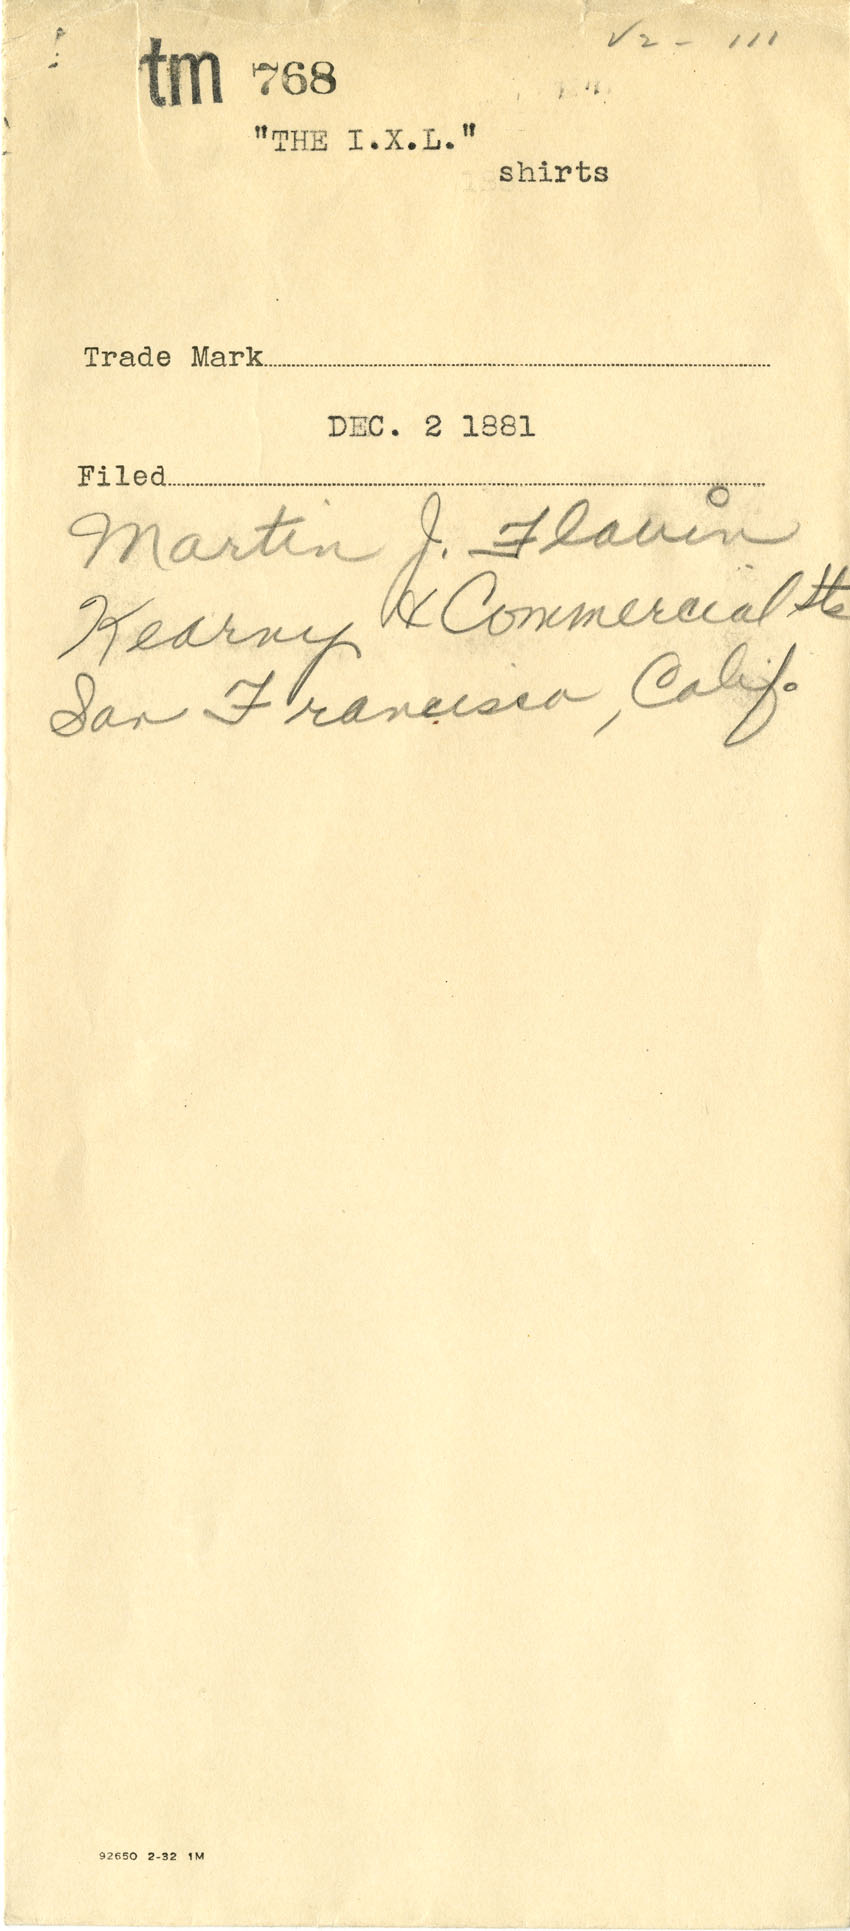 V2 - 111
tm 768
"THE I.X.L."
shirts
Trade Mark
DEC. 2 1881
Filed
Martin J. Flavin
Kearny & Commercial Sts
San Francisco, Calif.
92650 2-32 1M